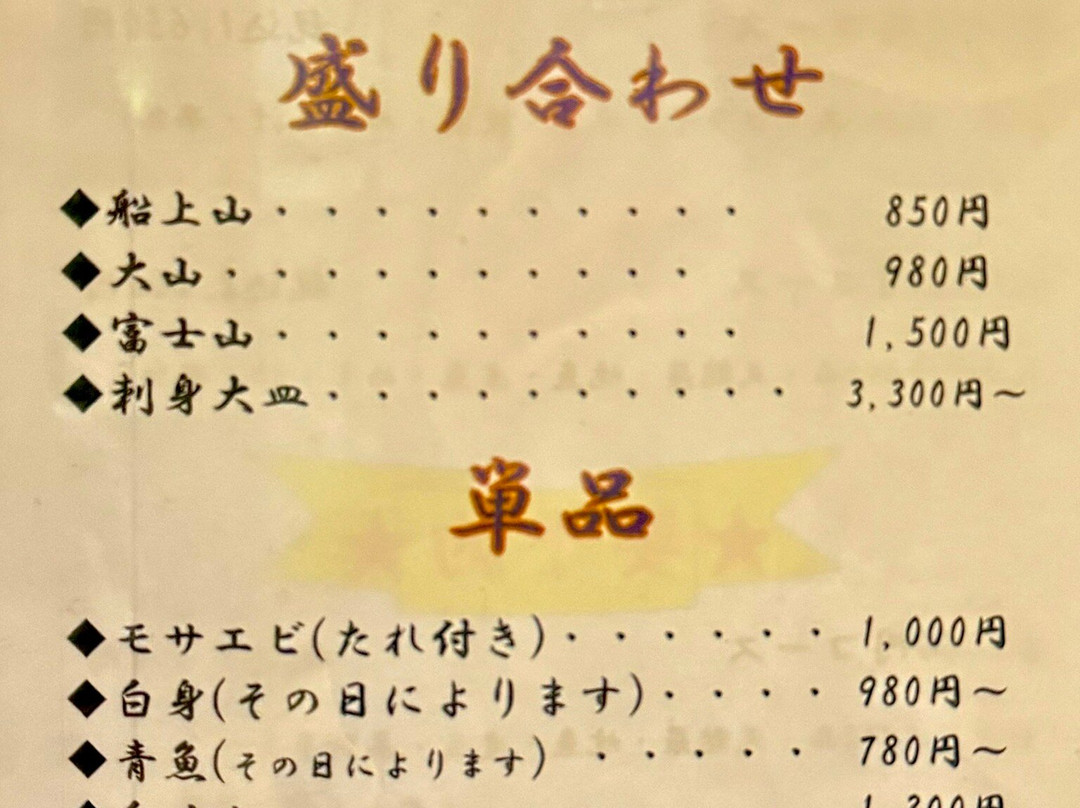 盛り合わせ
◆船上山・・・・・・・・・・ 850円
◆大山・・・・・・・・・・ 980円
◆富士山・・・・・・・・・・ 1,500円
◆刺身大皿・・・・・・・・・・ 3,300円～
単品
◆モサエビ(たれ付き)・・・・・・ 1,000円
◆白身(その日によります)・・・・ 980円～
◆青魚(その日によります) ・・・・・ 780円～